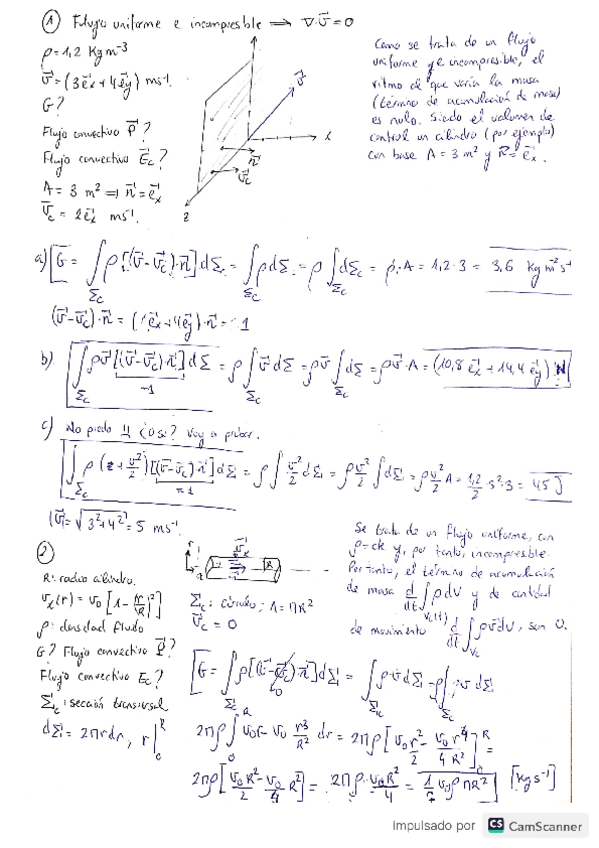 ① Flujo uniforme e incompresible ⟹ ∇·v⃗ = 0
ρ = 1,2 Kg m⁻³
v⃗ = (3e⃗x + 4e⃗y) ms⁻¹.
G?
Flujo convectivo P⃗?
Flujo convectivo Ec?
A = 3 m² ⟹ n⃗ = e⃗x
v⃗c = 2e⃗x ms⁻¹.
x
z
v⃗
n⃗
v⃗c
Como se trata de un flujo
uniforme y e incompresible, el
ritmo al que varía la masa
(término de acumulación de masa)
es nulo. Siendo el volumen de
control un cilindro (por ejemplo)
con base A = 3 m² y n⃗ = e⃗x.
a) G = ∫Σc ρ[(v⃗-v⃗c)·n⃗]dΣ = ∫Σc ρdΣ = ρ∫Σc dΣ = ρ·A = 1,2·3 = 3,6 Kg m⁻² s⁻¹
(v⃗-v⃗c)·n⃗ = (1e⃗x + 4e⃗y)·n⃗ = 1
b) ∫Σc ρv⃗[(v⃗-v⃗c)·n⃗]dΣ = ρ∫Σc v⃗dΣ = ρv⃗∫Σc dΣ = ρv⃗·A = (10,8e⃗x + 14,4e⃗y) N
c) No puedo
Voy a probar.
= ρ∫ v²/2 dΣ = ρ v²/2 ∫dΣ = ρ v²/2 A = 1,2/2 ·5²·3 = 45 J
|v⃗| = √(3²+4²) = 5 ms⁻¹.
②
R: radio cilindro.
vx(r) = v0[1-(r/R)²]
ρ: densidad fluido
G? Flujo convectivo P⃗?
Flujo convectivo Ec?
Σc: sección transversal
dΣ = 2πrdr, r|₀ᴿ
Σc: círculo; A = πR²
v⃗c = 0
Se trata de un flujo uniforme, con
ρ = ctk y, por tanto, incompresible.
Por tanto, el término de acumulación
de masa d/dt ∫Vc(t) ρdV y de cantidad
de movimiento d/dt ∫Vc ρv⃗dV, son 0.
G = ∫Σc ρ[(v⃗-v⃗c)·n⃗]dΣ =
2πρ∫₀ᴿ v0r - v0 r³/R² dr = 2πρ[v0r²/2 - v0r⁴/4R²]₀ᴿ =
2πρ[v0R²/2 - v0/4 R²] = 2πρ·v0R²/4 = 1/2 v0ρπR² [kg s⁻¹]
Impulsado por CS CamScanner